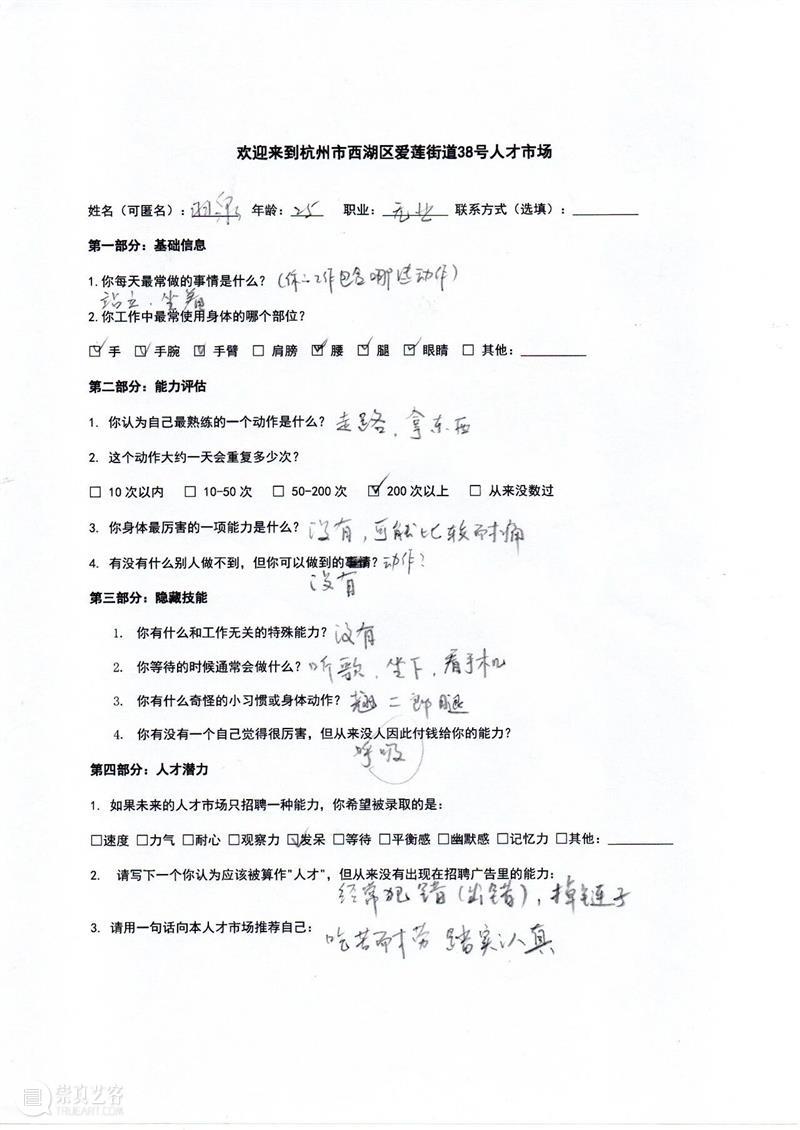 欢迎来到杭州市西湖区爱莲街道38号人才市场
姓名（可匿名）： 年龄：25 职业：无业 联系方式（选填）：
第一部分：基础信息
1.你每天最常做的事情是什么？（你的工作包含哪些动作）
站立、坐着
2.你工作中最常使用身体的哪个部位？
☑手 ☑手腕 ☑手臂 □肩膀 ☑腰 ☑腿 ☑眼睛 □其他：
第二部分：能力评估
1. 你认为自己最熟练的一个动作是什么？走路，拿东西
2. 这个动作大约一天会重复多少次？
□10次以内 □10-50次 □50-200次 ☑200次以上 □从来没数过
3. 你身体最厉害的一项能力是什么？没有，可能比较耐痛
4. 有没有什么别人做不到，但你可以做到的事情？动作？
没有
第三部分：隐藏技能
1. 你有什么和工作无关的特殊能力？没有
2. 你等待的时候通常会做什么？听歌、坐下、看手机
3. 你有什么奇怪的小习惯或身体动作？翘二郎腿
4. 你有没有一个自己觉得很厉害，但从来没人因此付钱给你的能力？
呼吸
第四部分：人才潜力
1. 如果未来的人才市场只招聘一种能力，你希望被录取的是：
□速度 □力气 □耐心 □观察力 ☑发呆 □等待 □平衡感 □幽默感 □记忆力 □其他：
2. 请写下一个你认为应该被算作"人才"，但从来没有出现在招聘广告里的能力：
经常犯错（出错），掉链子
3. 请用一句话向本人才市场推荐自己：吃苦耐劳 踏实认真
崇真艺客
TRUEART.COM